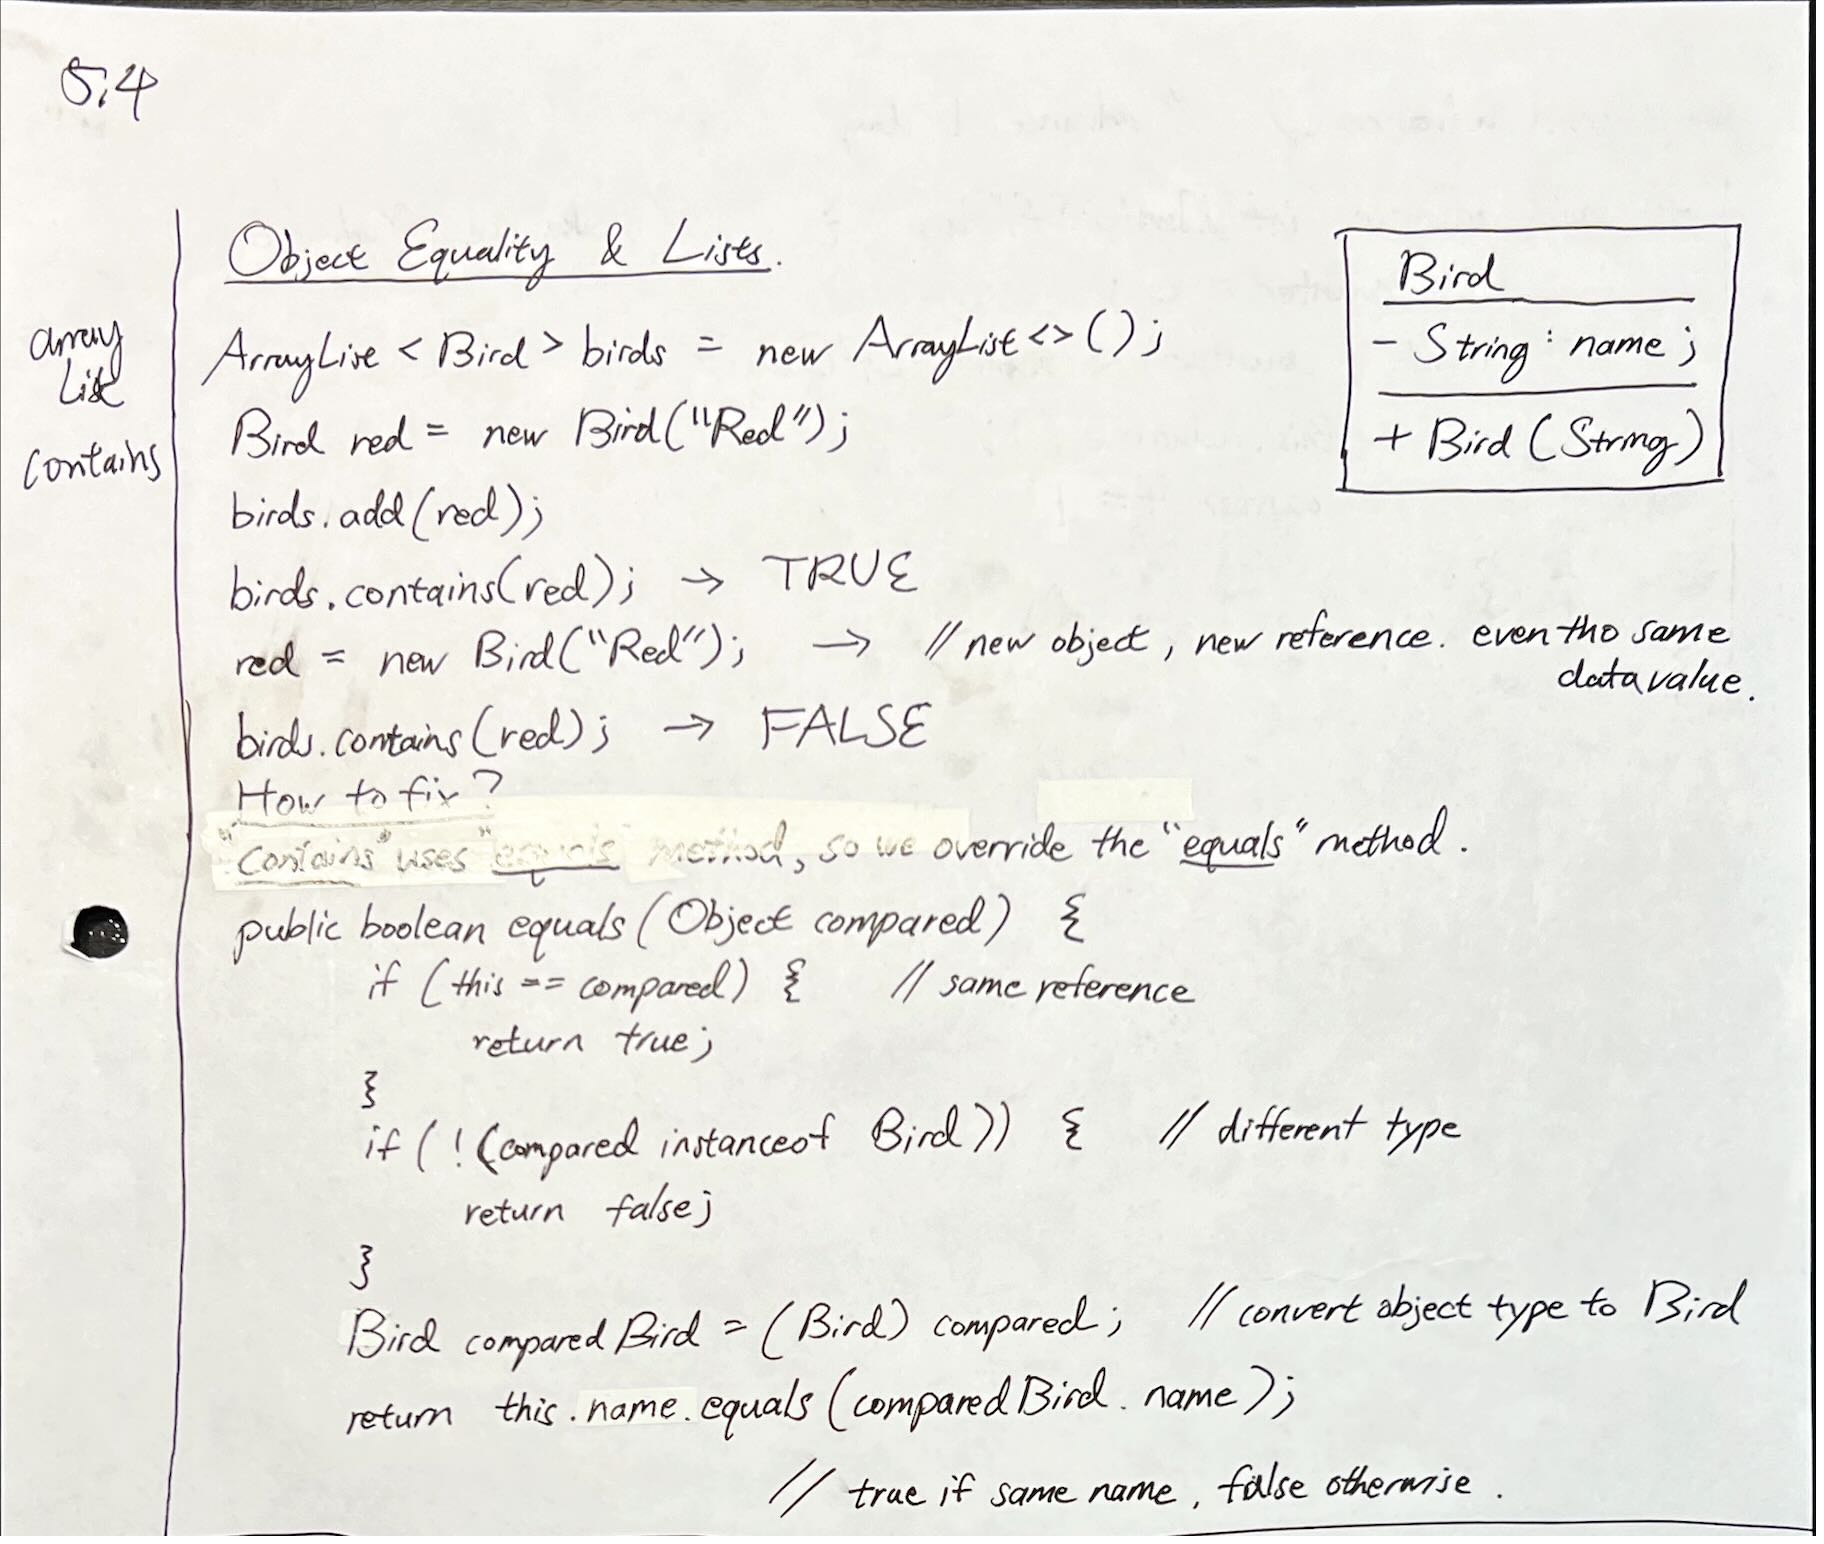 5.4
Object Equality & Lists.
array
list
contains
ArrayList <Bird> birds = new ArrayList<>();
Bird red = new Bird("Red");
birds.add(red);
birds.contains(red); → TRUE
red = new Bird("Red"); → // new object, new reference. even tho same
data value.
birds.contains(red); → FALSE
How to fix?
"contains" uses "equals" method, so we override the "equals" method.
public boolean equals(Object compared) {
if (this == compared) { // same reference
return true;
}
if (!(compared instanceof Bird)) { // different type
return false;
}
Bird comparedBird = (Bird) compared; // convert object type to Bird
return this.name.equals(comparedBird.name);
// true if same name, false otherwise.
Bird
- String: name;
+ Bird (String)